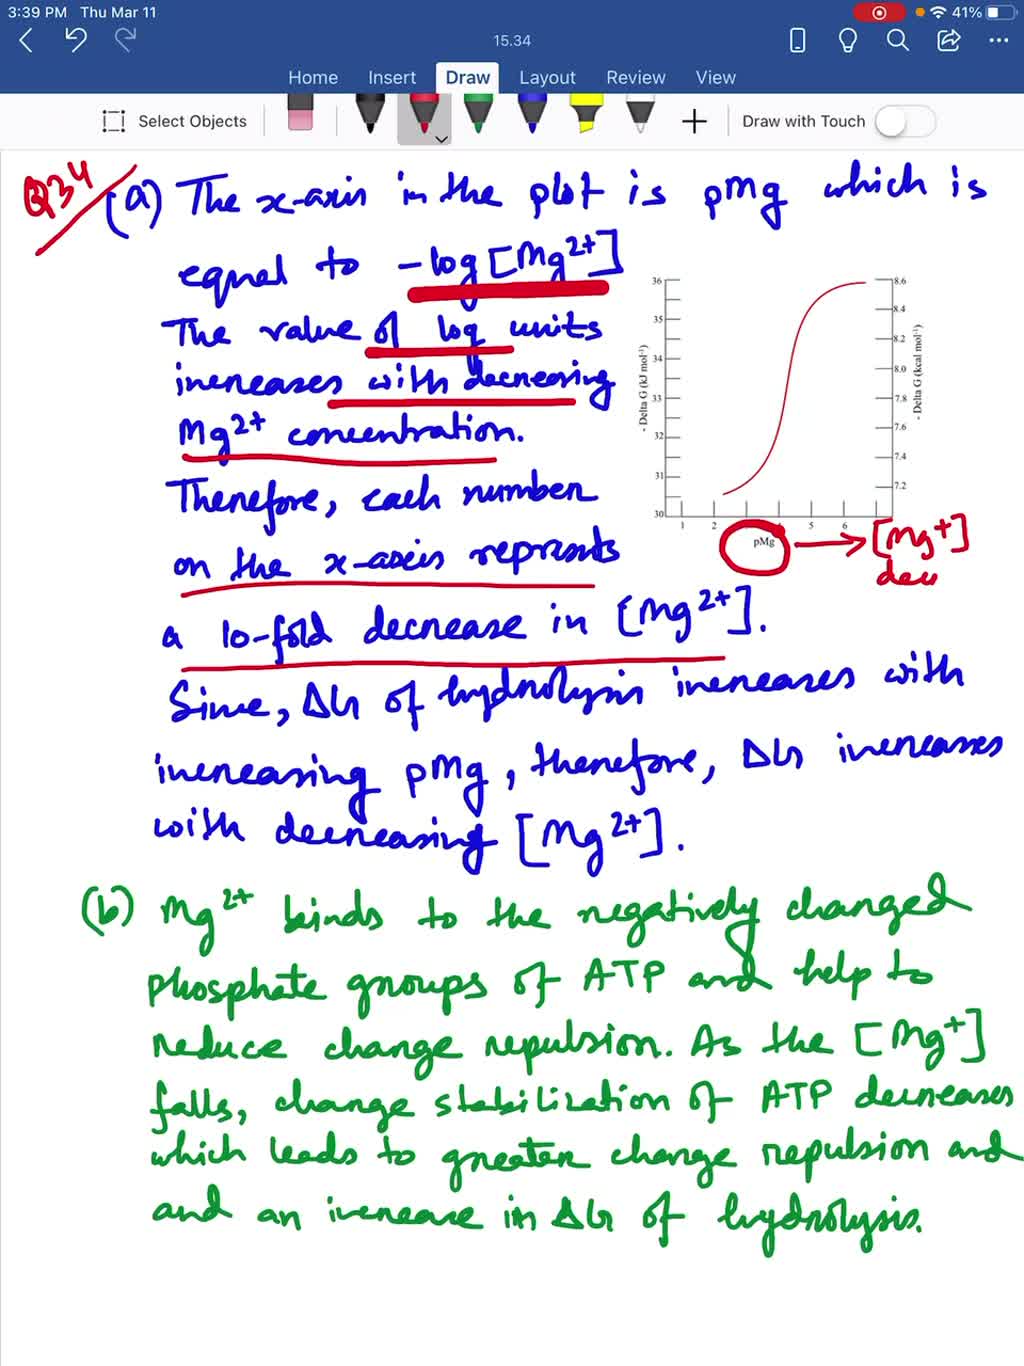 3:39 PM Thu Mar 11
41%
15.34
Home Insert Draw Layout Review View
Select Objects
Draw with Touch
Q34
(a) The x-axis in the plot is pMg which is
equal to -log [Mg2+]
The value of log units
increases with decreasing
Mg2+ concentration.
Therefore, each number
on the x-axis represents
a 10-fold decrease in [Mg2+].
Since, ΔG of hydrolysis increases with
increasing pMg, therefore, ΔG increases
with decreasing [Mg2+].
36
35
34
33
32
31
30
- Delta G (kJ mol-1)
8.6
8.4
8.2
8.0
7.8
7.6
7.4
7.2
- Delta G (kcal mol-1)
1 2 4 5 6
pMg
[Mg+]
dec
(b) Mg2+ binds to the negatively charged
phosphate groups of ATP and help to
reduce charge repulsion. As the [Mg+]
falls, charge stabilization of ATP decreases
which leads to greater charge repulsion and
and an increase in ΔG of hydrolysis.